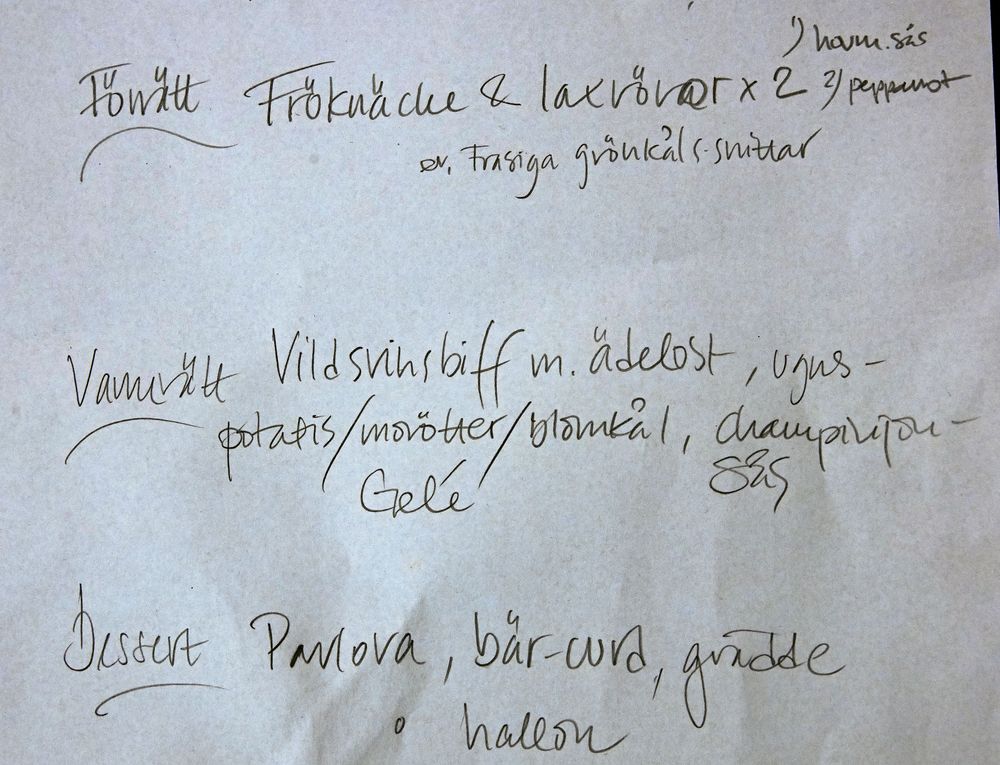 1) hovm.sås
Förrätt Fröknäcke & laxröror x 2 2) pepparrot
ev. Frasiga grönkåls-snittar
Varmrätt Vildsvinsbiff m. ädelost, ugns-
potatis/morötter/blomkål, champinjon-
Gelé sås
Dessert Pavlova, bär-curd, grädde
o hallon